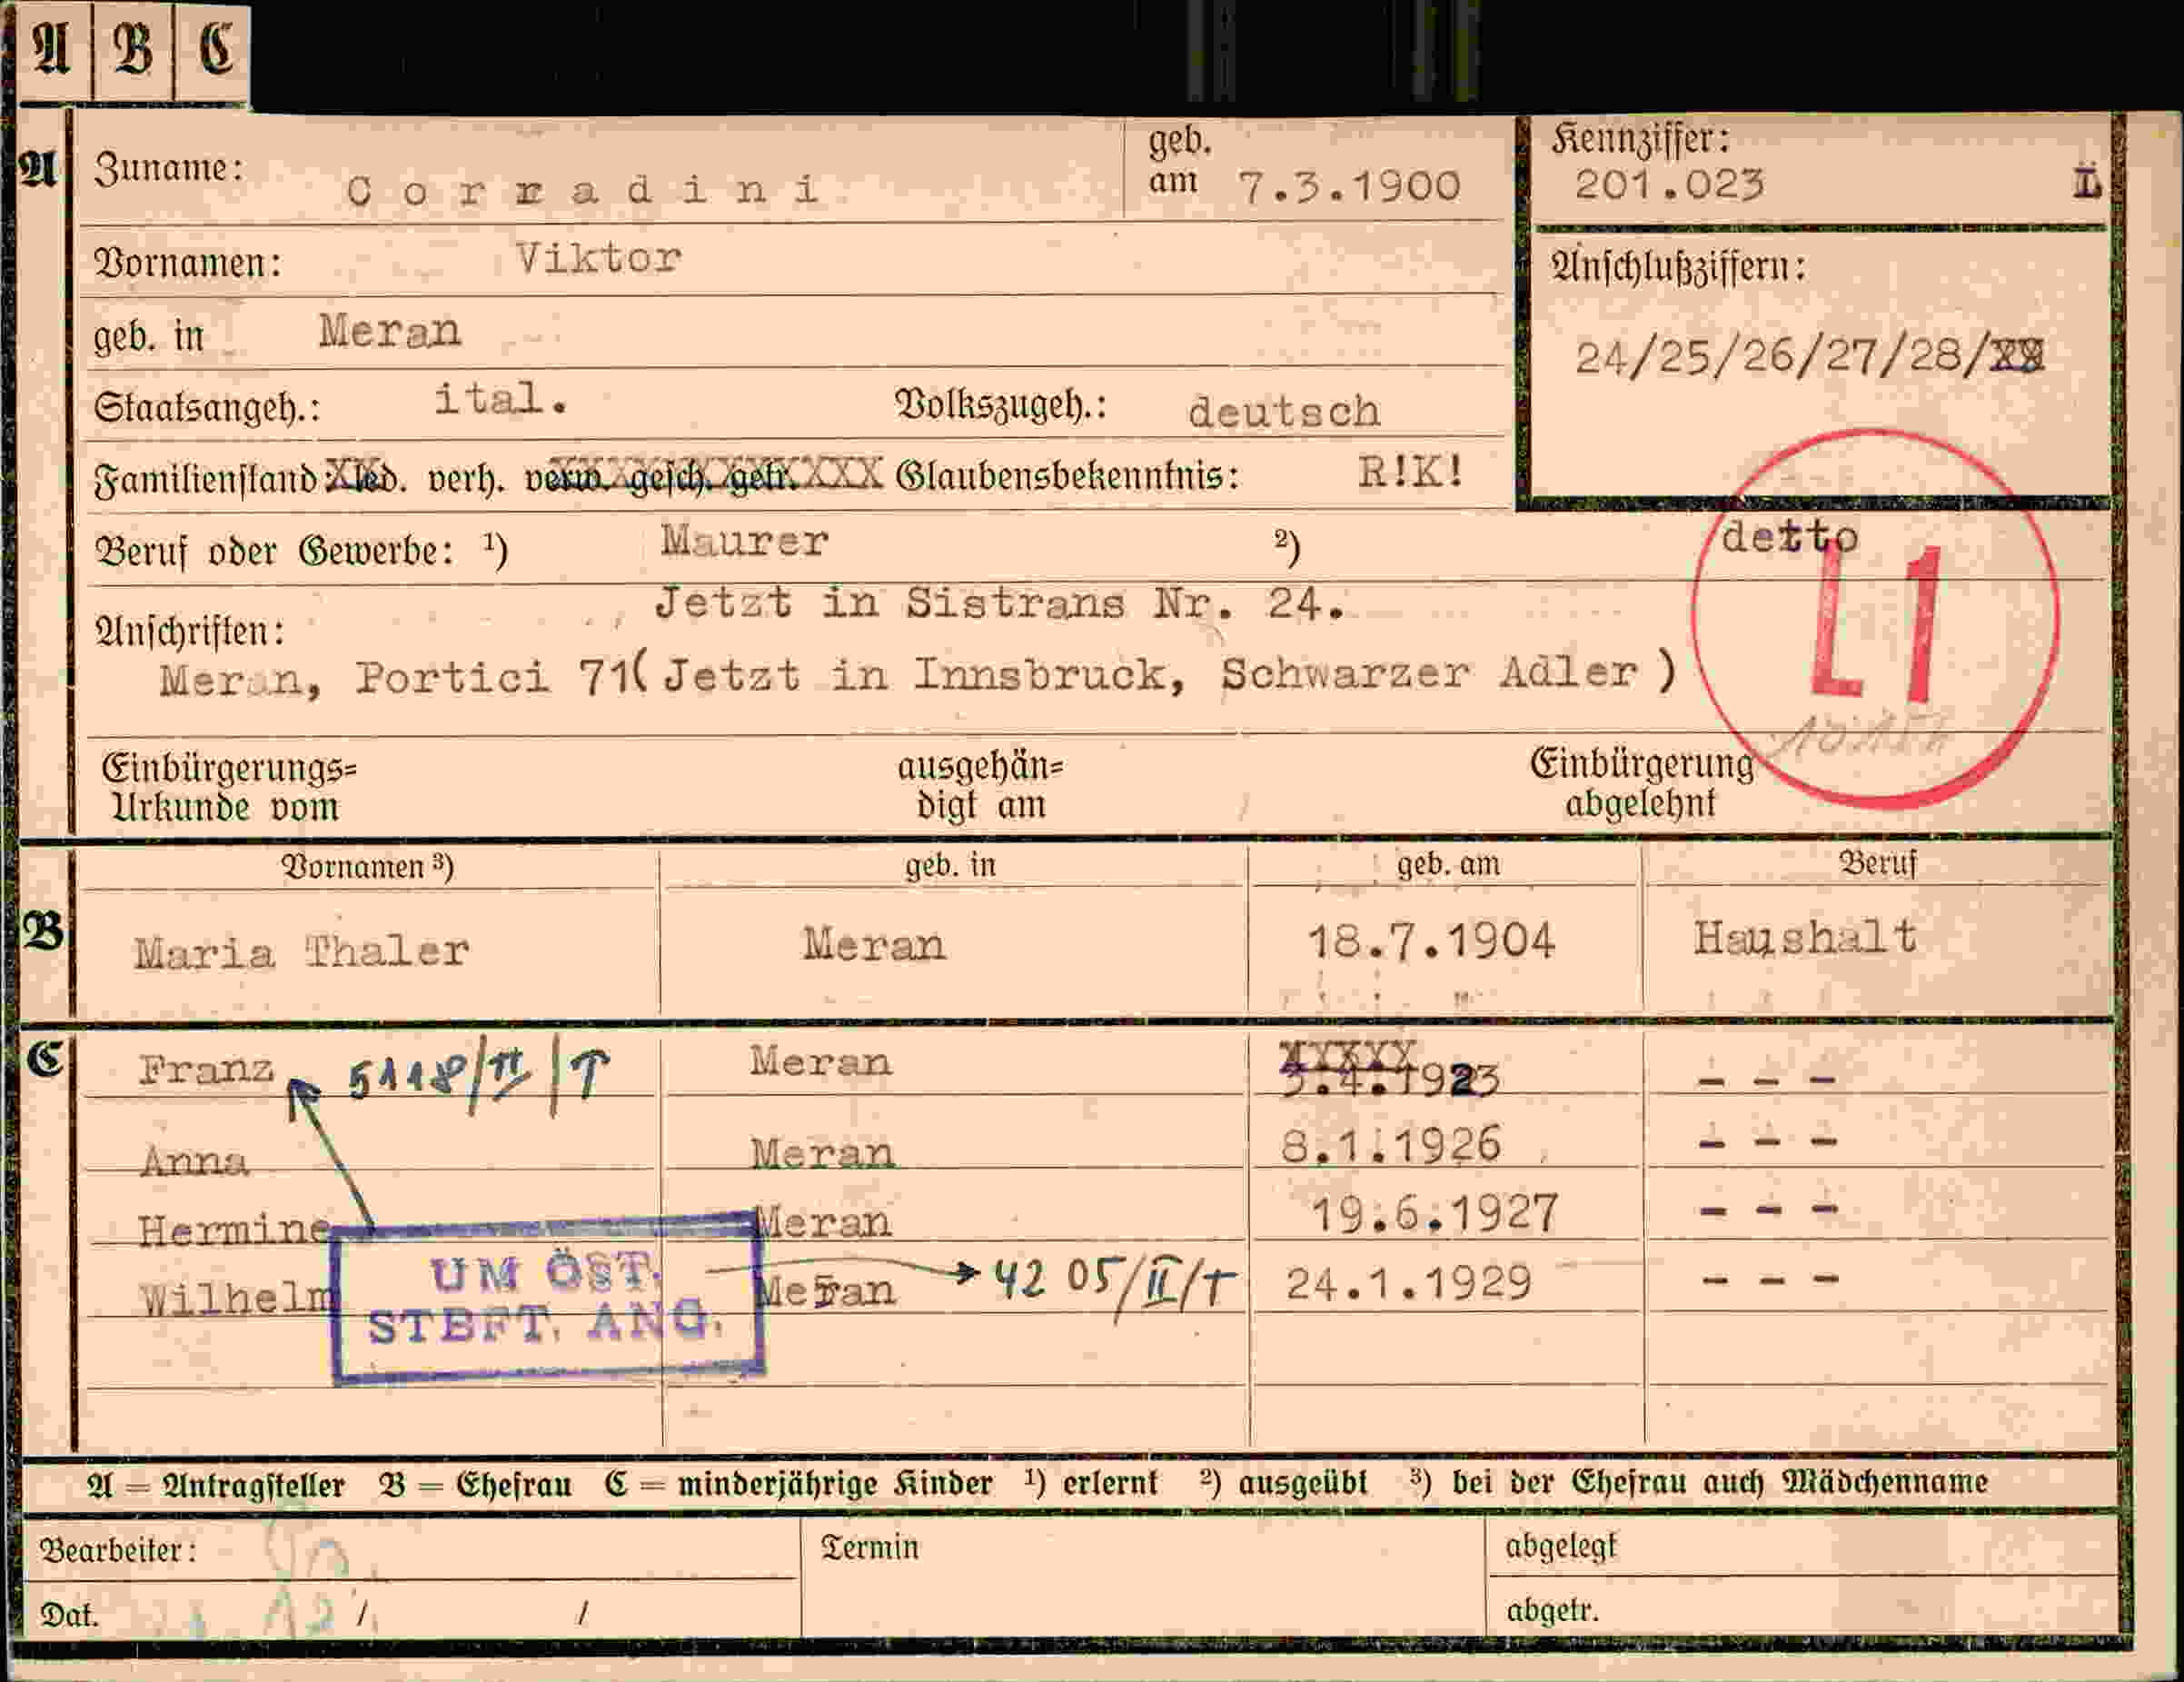 A B C
A Zuname: Corradini geb. am 7.3.1900 Kennziffer: 201.023 L
Vornamen: Viktor
geb. in Meran
Anschlußziffern:
24/25/26/27/28/
Staatsangeh.: ital. Volkszugeh.: deutsch
Familienstand: led. verh. verw. gesch. getr. Glaubensbekenntnis: R!K!
Beruf oder Gewerbe: 1) Maurer 2) detto
Jetzt in Sistrans Nr. 24.
Anschriften:
Meran, Portici 71( Jetzt in Innsbruck, Schwarzer Adler )
L1
Einbürgerungs= Urkunde vom
ausgehän= digt am
Einbürgerung abgelehnt
Vornamen 3) geb. in geb. am Beruf
B Maria Thaler Meran 18.7.1904 Haushalt
C Franz 5118/II/T Meran 1923 - - -
Anna Meran 8.1.1926 - - -
Hermine Meran 19.6.1927 - - -
Wilhelm Meran 42 05/II/T 24.1.1929 - - -
UM ÖST.
STBFT. ANG.
A = Antragsteller B = Ehefrau C = minderjährige Kinder 1) erlernt 2) ausgeübt 3) bei der Ehefrau auch Mädchenname
Bearbeiter: Termin abgelegt
Dat. / / abgetr.